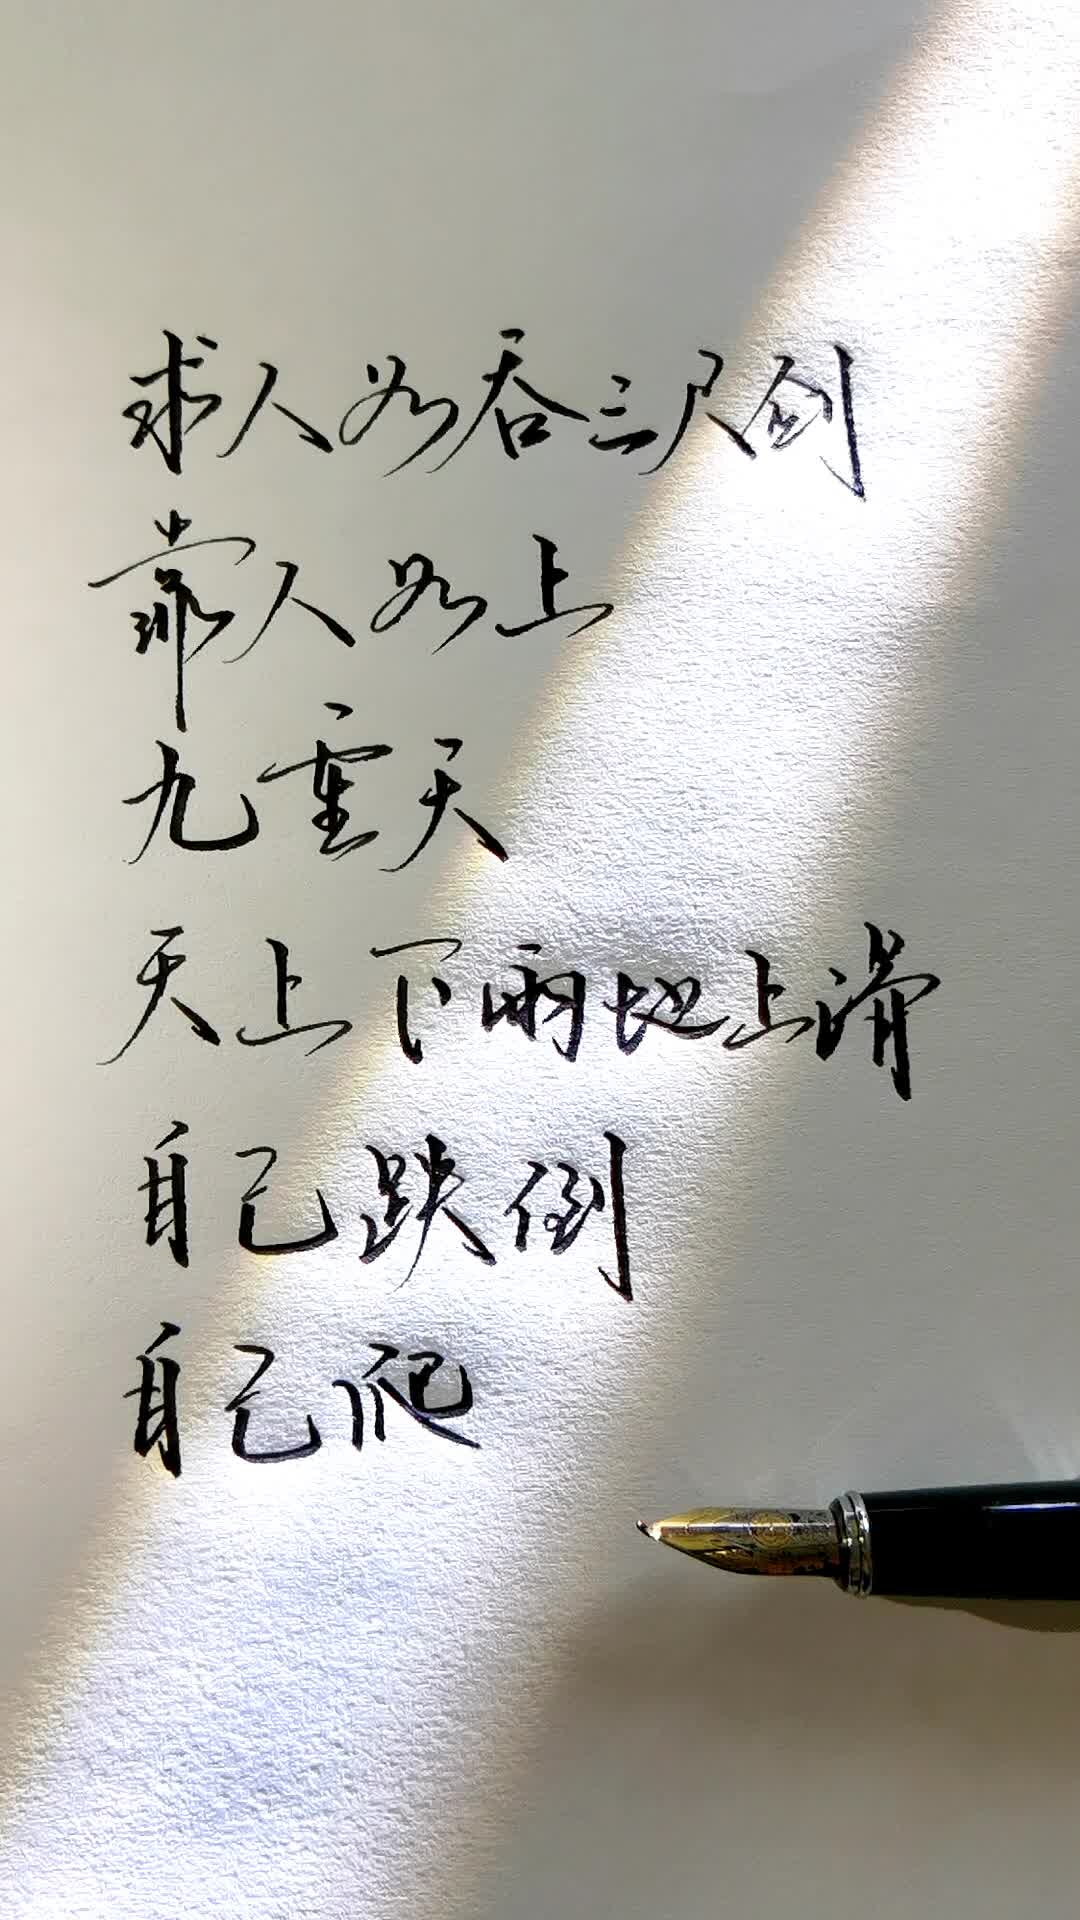 求人如吞三尺剑
靠人如上
九重天
天上下雨地上滑
自己跌倒
自己爬